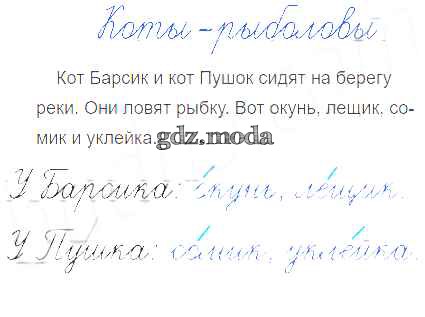 Коты – рыболовы.
Кот Барсик и кот Пушок сидят на берегу
реки. Они ловят рыбку. Вот окунь, лещик, со-
мик и уклейка.
gdz.moda
У Барсика: окунь, лещик.
У Пушка: сомик, уклейка.